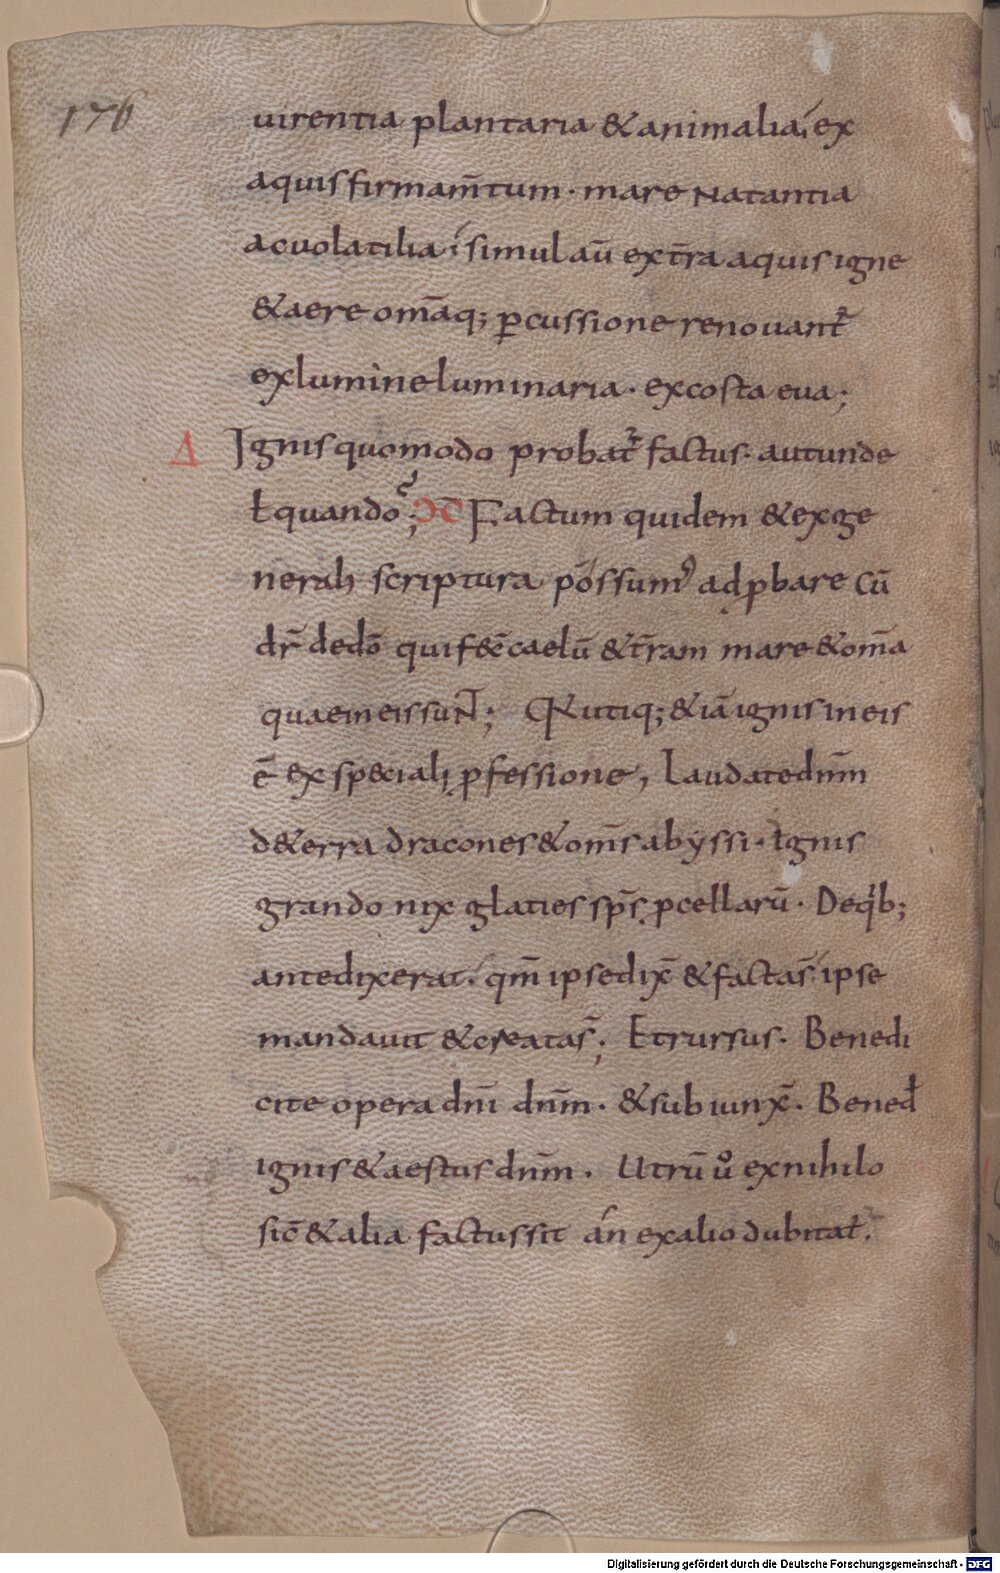 176
uirentia plantaria & animalia; ex
aquis firmam̄tum · mare natantia
ac uolatilia; simul aū ex t̄ra aquis igne
& aere om̄aq; ꝑcussione renouant᷑
ex lumine luminaria · ex costa eua;
Δ Ignis quomodo probat᷑ factus · aut unde
ł quando; Ↄ̄C̄ Factum quidem & ex ge
nerali scriptura possum᷒ ad ꝓbare cū
dr̄ de dō qui fec̄ caelū & t̄ram mare & om̄a
quae in eis sunt; Q Utiq; & iā ignis in eis
ē ex speciali ꝓfessione, Laudate dnm̄
de terra dracones & om̄s abyssi · Ignis
grando nix glacies sp̄s ꝓcellarū · De qib;
ante dixerat; qm̄ ipse dix̄ & facta s̄ ipse
mandauit & creata s̄; Et rursus · Benedi
cite opera dnī dnm̄ · & subiunx̄ · Bened̄
ignis & aestus dnm̄ · Utrū uº ex nihilo
sic̄ & alia factus sit án ex alio dubitat᷑.
Digitalisierung gefördert durch die Deutsche Forschungsgemeinschaft - DFG